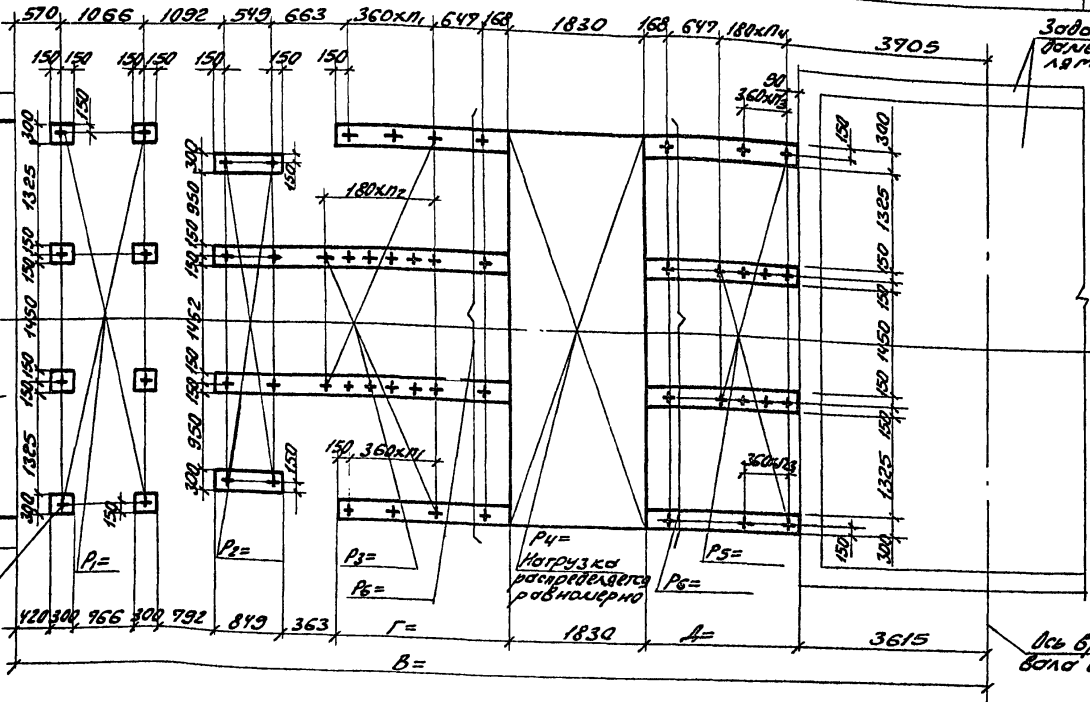 570 1066 1092 549 663 360xп₁ 647 168 1830 168 647 180xп₄ 3705
150 150 150 150 150 150 150
90
360xп₃
150
300
1325
150 150
1450
150 150
1325
300
150
300
950
150 150
1462
150 150
950
300
150
150
180xп₂
150 360xп₁
360xп₃
150
300
1325
150
150
1450
150
150
1325
300
150
150
P₁=
P₂=
P₃=
P₆=
P₄=
Нагрузка
распределяется
равномерно
P₆=
P₅=
420 300 966 300 792 849 363 Г= 1830 Д= 3615
В=
Ось
вала